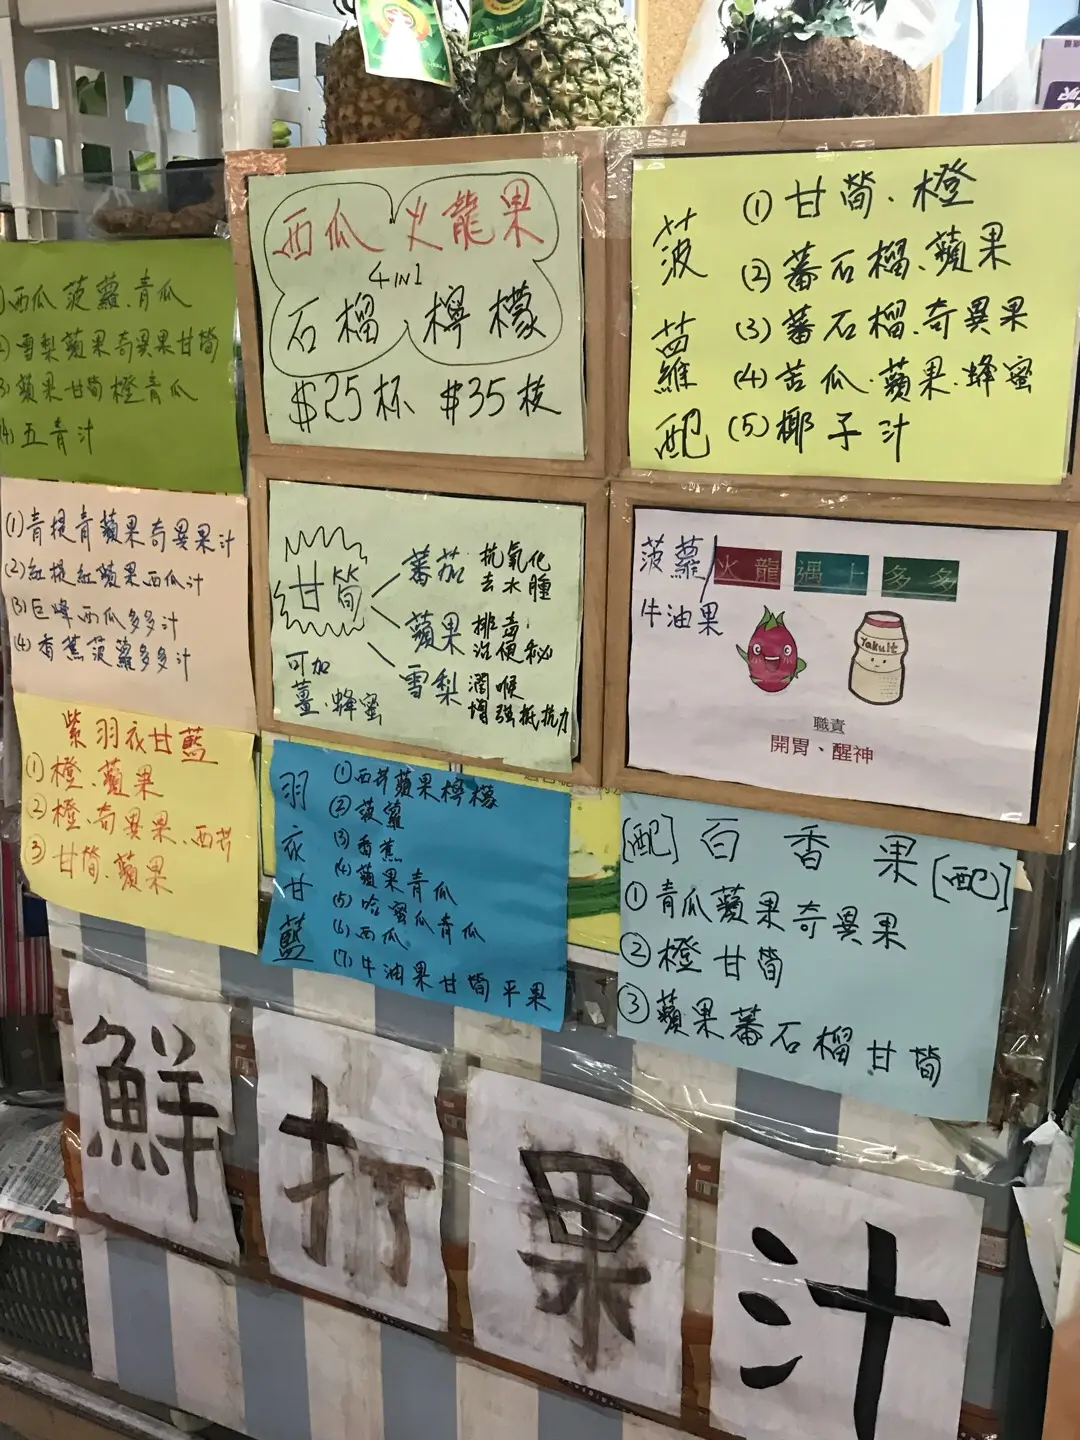 西瓜 火龍果
4 IN 1
石榴 檸檬
$25杯 $35枝
菠蘿配
(1) 甘筍、橙
(2) 蕃石榴、蘋果
(3) 蕃石榴、奇異果
(4) 苦瓜·蘋果·蜂蜜
(5) 椰子汁
西瓜菠蘿青瓜
雪梨蘋果奇異果甘筍
蘋果甘筍橙青瓜
(4) 五青汁
(1) 青提青蘋果奇異果汁
(2) 紅提紅蘋果西瓜汁
(3) 巨峰西瓜多多汁
(4) 香蕉菠蘿多多汁
甘筍
蕃茄 抗氧化 去水腫
蘋果 排毒 治便秘
雪梨 潤喉 增強抵抗力
可加
薑·蜂蜜
菠蘿/火龍遇上多多
牛油果
Yakult
職責
開胃、醒神
紫羽衣甘藍
① 橙、蘋果
② 橙、奇異果、西芹
③ 甘筍、蘋果
羽衣甘藍
① 西芹蘋果檸檬
② 菠蘿
(3) 香蕉
(4) 蘋果青瓜
(5) 哈蜜瓜青瓜
(6) 西瓜
(7) 牛油果甘筍平果
[配] 百香果 [配]
① 青瓜蘋果奇異果
② 橙甘筍
③ 蘋果蕃石榴甘筍
鮮打果汁